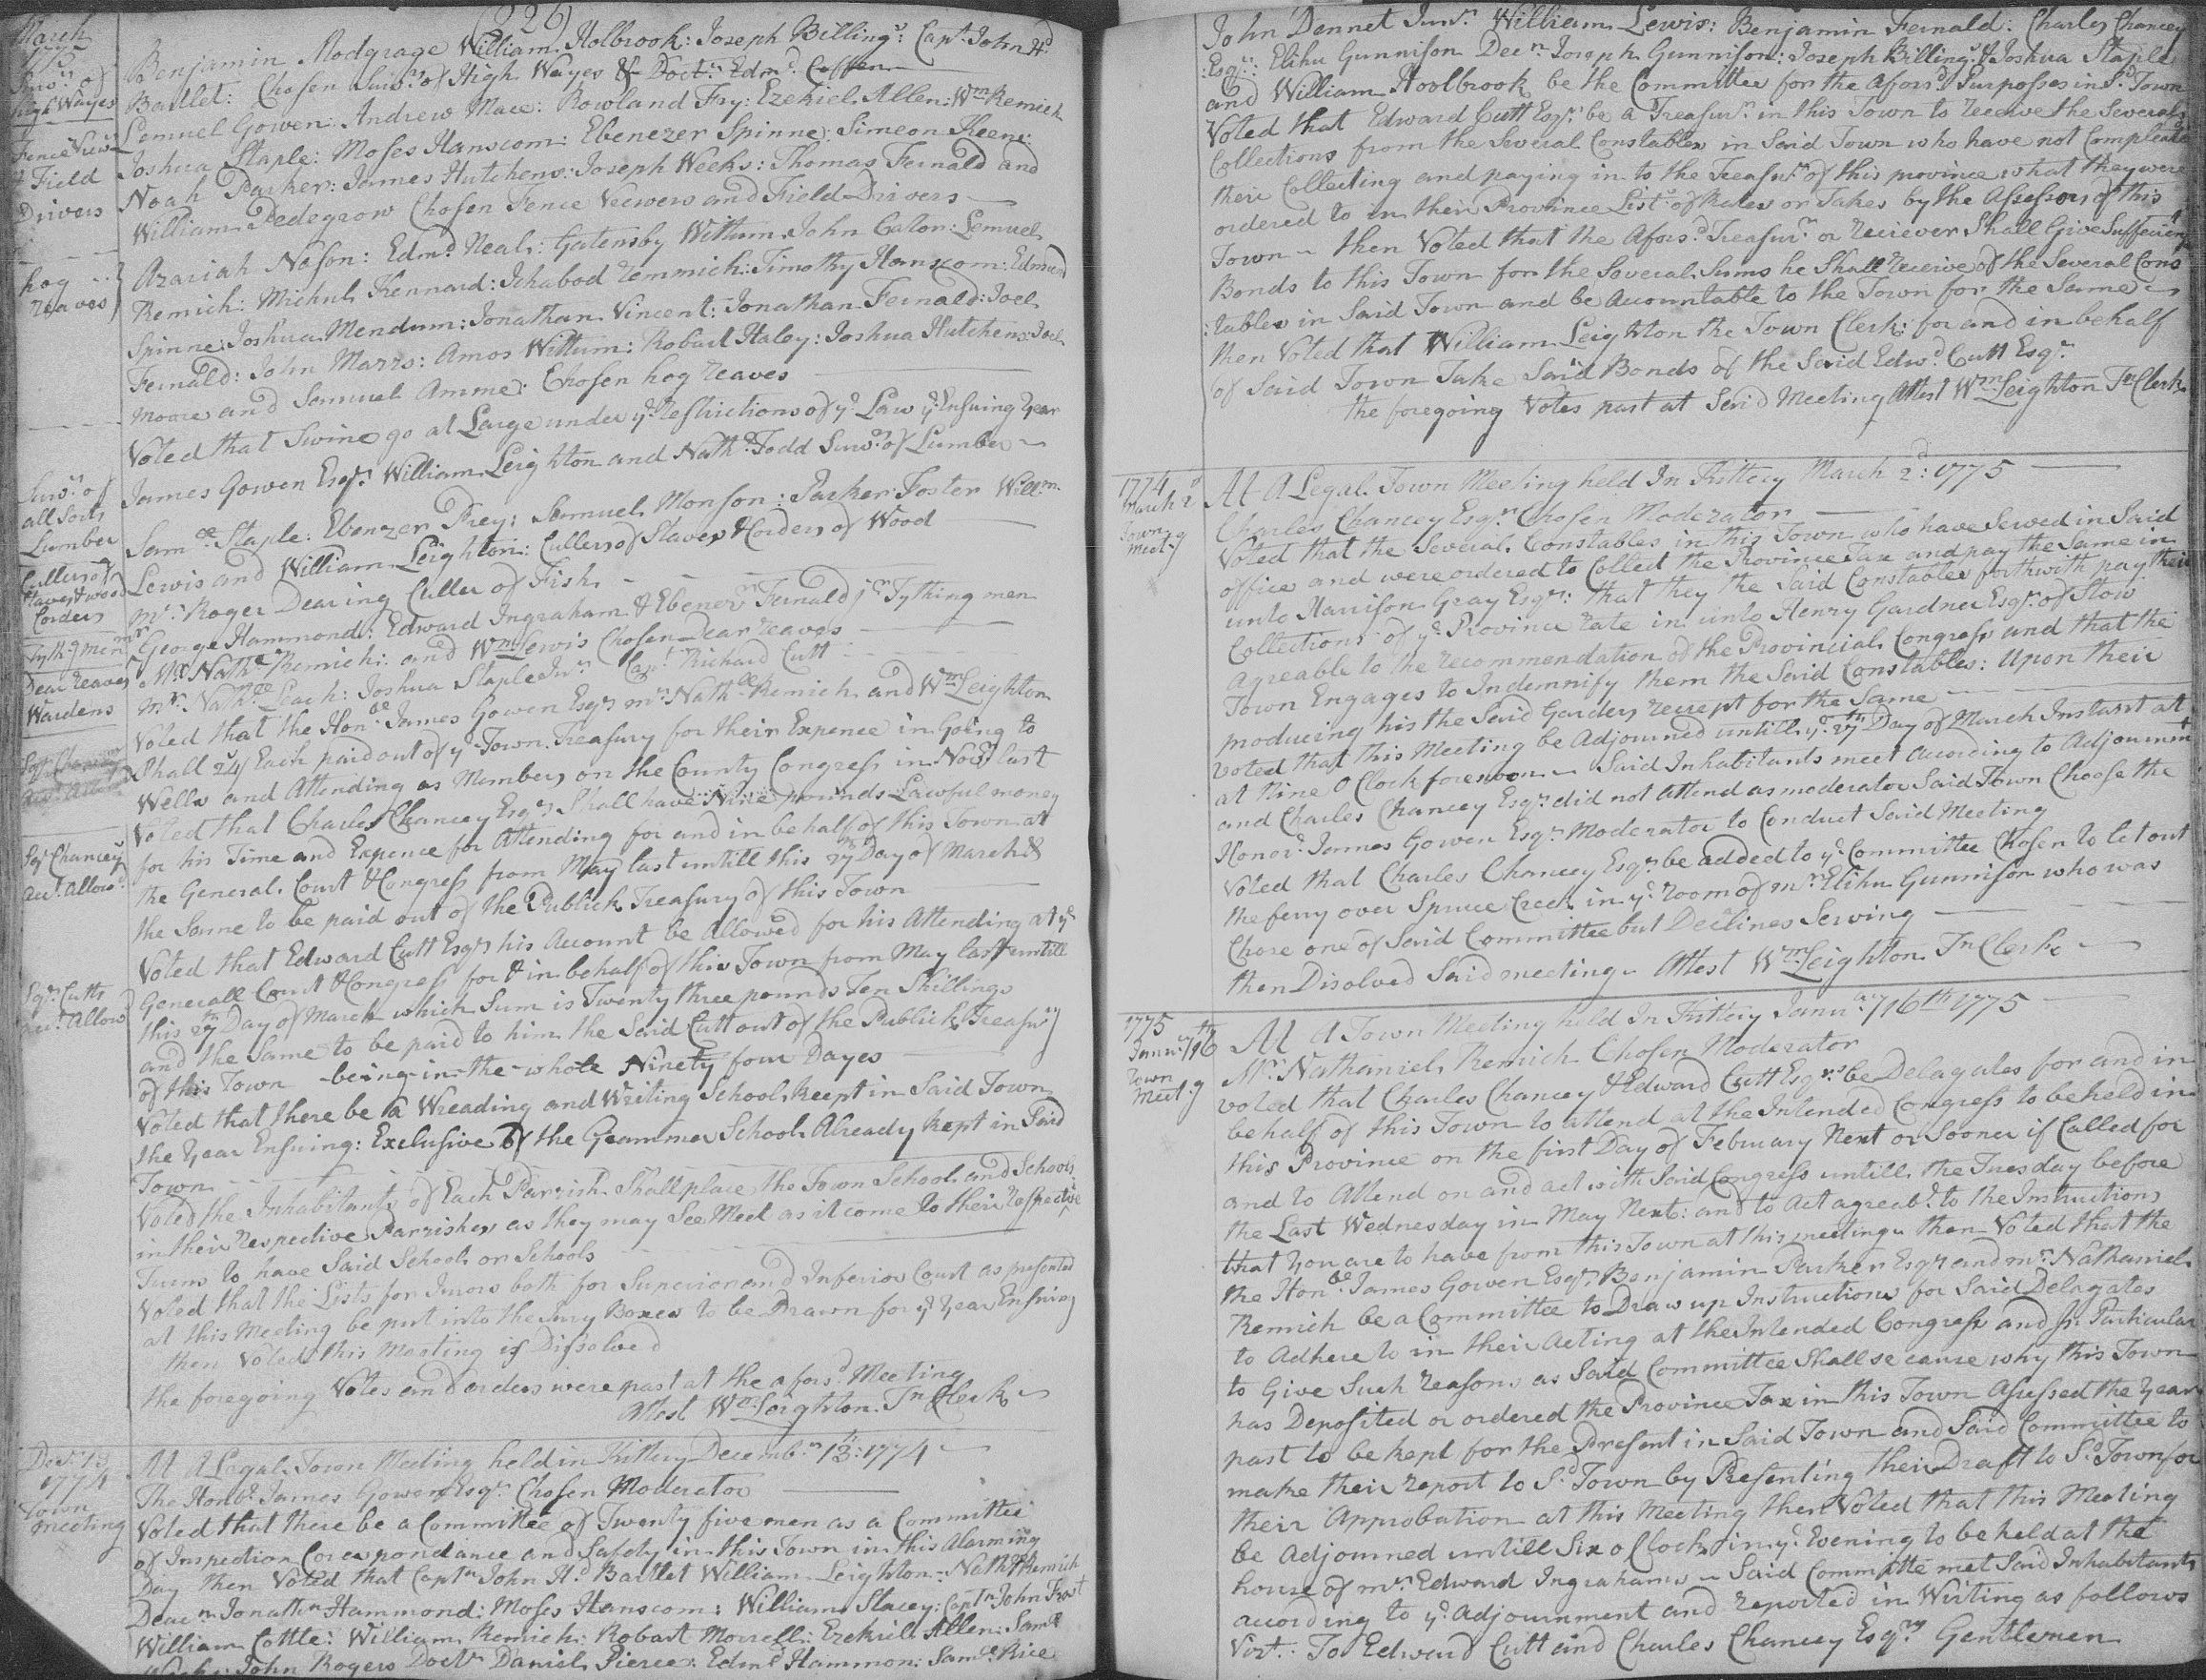 (226)
March
1775
Surv.rs of
high Wayes
Benjamin Modgrage William Holbrook: Joseph Billing.s: Cap.t John H.d
Bartlet: Chosen Surv.rs of High Wayes & Doct.r Edm.d Coffen
Fence View.rs
& Field
Drivers
Lemuel Gowen: Andrew Mace: Rowland Fry: Ezekiel Allen: W.m Remich
Joshua Staple: Moses Hanscom: Ebenezer Spinne: Simeon Keene:
Noah Parker: James Hutchens: Joseph Weeks: Thomas Fernald and
William Pedegrow Chosen Fence Veewers and Field Drivers
hog
reaves
Azariah Nason: Edm.d Neal: Gatensby Wittum John Caton: Lemuel
Remich: Michul Kennard: Ichabod Remmich: Timothy Hanscom: Edmund
Spinne: Joshua Mendum: Jonathan Vincent: Jonathan Fernald: Joel
Fernald: John Marrs: Amos Wittum: Robart Haley: Joshua Hutchens: Joel
Moore and Samuel Amme: Chosen hog reaves
Voted that Swine go at Large under y.e Restrictions of y.e Law y.e Ensuing Year
Surv.rs of
all Sorts
Lumber
James Gowen Esq.r William Leighton and Nath.l Todd Surv.rs of Lumber
Cullers of
Staves & wood
Corders
Sam.ll Staple: Ebenzer Frey: Samuel Monson: Parker Foster Will.m
Lewis and William Leighton: Cullers of Staves & Corders of Wood
M.r Roger Dearing Culler of Fish
Tyth.g men
George Hammond: Edward Ingraham & Ebener Fernald j.r Tything men
Dear reaves
M.r Nath.l Remich: and W.m Lewis Chosen Dear reaves
Wardens
M.r Nath.ll Leach: Joshua Staple Jun.r Cap.t Richard Cutt
Voted that the Hon.ble James Gowen Esq.r m.r Nath.ll Remich and W.m Leighton
Shall 24/ Each paid out of y.e Town Treasury for their Expence in Going to
Wells and Attending as Members on the County Congress in Nov.r last
Esq.r Chancey
acc.t Allow.d
Voted that Charles Chancey Esq.r Shall have Nine pounds Lawful money
for his Time and Expence for Attending for and in behalf of this Town at
the General Court & Congress from May last untill this 27th Day of March &
the Same to be paid out of the Publick Treasury of this Town
Esq.r Cutts
acc.t Allow.d
Voted that Edward Cutt Esq.r his Account be Allowed for his Attending at y.e
Generall Court & Congress for & in behalf of this Town from May last untill
this 27th Day of March which Sum is Twenty three pounds Ten Shillings
and the Same to be paid to him the Said Cutt out of the Publick Treasury
of this Town being in the whole Ninety four Dayes
Voted that there be a Wreading and Writing School kept in Said Town
the Year Ensuing: Exclusive Of the Grammer School Already kept in Said
Town
Voted the Inhabitants of Each Parrish Shall place the Town School and Schools
in their Respective Parrishes as they may See Meet as it come to their respective
Turns to have Said School or Schools
Voted that the Lists for Jurors both for Superior and Inferior Court as presented
at this Meeting be put into the Jury Boxes to be Drawn for y.e Year Ensuing
then Voted this Meeting is Dissolved
the foregoing Votes and orders were past at the afors.d Meeting
Attest W.m Leighton T.n Clerk
Dec.r 13
1774
Town
meeting
At A Legal Town Meeting held in Kittery Decemb.r 13: 1774
The Hon.ble James Gowen Esq.r Chosen Moderator
Voted that there be a Committee of Twenty five men as a Committee
of Inspection Corespondance and Safety in this Town in this Alarming
Day then Voted that Capt.n John H.d Bartlet William Leighton: Nath.ll Remich
Deac.n Jonath.n Hammond: Moses Hanscom: William Stacey: Capt.n John Frost
William Cottle: William Remich: Robart Morrell: Ezekiel Allen: Sam.ll
Weeks: John Rogers Doct.r Daniel Pierce: Edm.d Hammon: Sam.ll Rice
John Dennet Jun.r William Lewis: Benjamin Fernald: Charles Chancey
Esq.r: Elihu Gunnison Dec.n Joseph Gunnison: Joseph Billing.s & Joshua Staple
and William Hoolbrook be the Committee for the Afors.d Purposses in S.d Town
Voted that Edward Cutt Esq.r be a Treasur.r in this Town to receive the Several
Collections from the Several Constables in Said Town who have not Compleated
their Collecting and paying in to the Treasur.r of this province what they were
ordered to in their Province List of Rates or Takes by the Assessors of this
Town then Voted that the Afors.d Treasur.r or Reciever Shall Give Suffecient
Bonds to this Town for the Several Sums he Shall receive of the Several Cons
:tables in Said Town and be Acountable to the Town for the Same
then Voted that William Leighton the Town Clerk: for and in behalf
of Said Town Take Said Bonds of the Said Edw.d Cutt Esq.r
the foregoing Votes past at Said Meeting Attest W.m Leighton T.n Clerk
1774
March 2.d
Town
meet.g
At A Legal Town Meeting held In Kittery March 2.d: 1775
Charles Chancey Esq.r Chosen Moderator
Voted that the Several Constables in this Town who have Served in Said
office and were ordered to Collect the Province Tax and pay the Same in
unto Harrison Gray Esq.r: that they the Said Constables forthwith pay their
Collections of y.e Province rate in unto Henry Gardner Esq.r of Stow
Agreable to the recommendation of the Provincial Congress and that the
Town Engages to Indemnify them the Said Constables: Upon their
producing his the Said Garders receept for the Same
voted that this Meeting be Adjourned untill y.e 27th Day of March Instant at
at Nine O Clock forenoon Said Inhabitants meet Acording to Adjournm.t
and Charles Chancey Esq.r did not Attend as moderator Said Town Choose the
Honor.d James Gowen Esq.r Moderator to Conduct Said Meeting
Voted that Charles Chancey Esq.r be added to y.e Committee Chosen to let out
the ferry over Spruce Creek in y.e room of m.r Elihu Gunnison who was
Chose one of Said Committee but Declines Serving
then Disolved Said meeting Attest W.m Leighton T.n Clerk
1775
Janu.ry 16th
Town
Meet.g
At A Town Meeting held In Kittery Janu.ary 16th 1775
M.r Nathaniel Remich Chosen Moderator
voted that Charles Chancey & Edward Cutt Esq.rs be Delagates for and in
behalf of this Town to attend at the Intended Congress to be held in
this Province on the first Day of February Next or Sooner if Called for
and to Attend on and act with Said Congress untill the Tuesday before
the Last Wednesday in May Next: and to Act agreab.e to the Instructions
that You are to have from this Town at this meeting then Voted that the
the Hon.ble James Gowen Esq.r, Benjamin Parker Esq.r and m.r Nathaniel
Remich be a Committee to Draw up Instructions for Said Delagates
to Adhere to in their Acting at the Intended Congress and in Particular
to Give Such reasons as Said Committee Shall se cause why this Town
has Deposited or ordered the Province Tax in this Town Asessed the Year
past to be kept for the Present in Said Town and Said Committee to
make their report to S.d Town by Presenting their Draft to S.d Town for
their Approbation at this Meeting then Voted that this Meeting
be Adjourned untill Six o Clock in y.e Evening to be held at the
house of m.r Edward Ingrahams Said Committe met Said Inhabitants
acording to y.e Adjournment and reported in Writing as follows
Vizt. To Edward Cutt and Charles Chancey Esq.rs Gentlemen